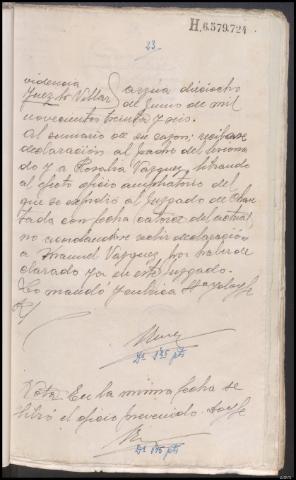 H.6.579.724
23.
videncia
Juez Sr Villar Sarria dieciocho
de Junio de mil
novecientos treinta y seis.
Al sumario de su razon; recíbase
declaración al padre del lesiona
do y a Rosalia Vazquez, librando
al efecto oficio ampliatorio del
que se expidió al juzgado de Chan
tada con fecha catorce del actual,
no acordandose recibir declaración
a Manuel Vazquez, por haber de
clarado ya en este juzgado.
Lo mandó y rubrica S.S. doy fe
Nota. En la misma fecha se
libró el oficio prevenido. Doy fe